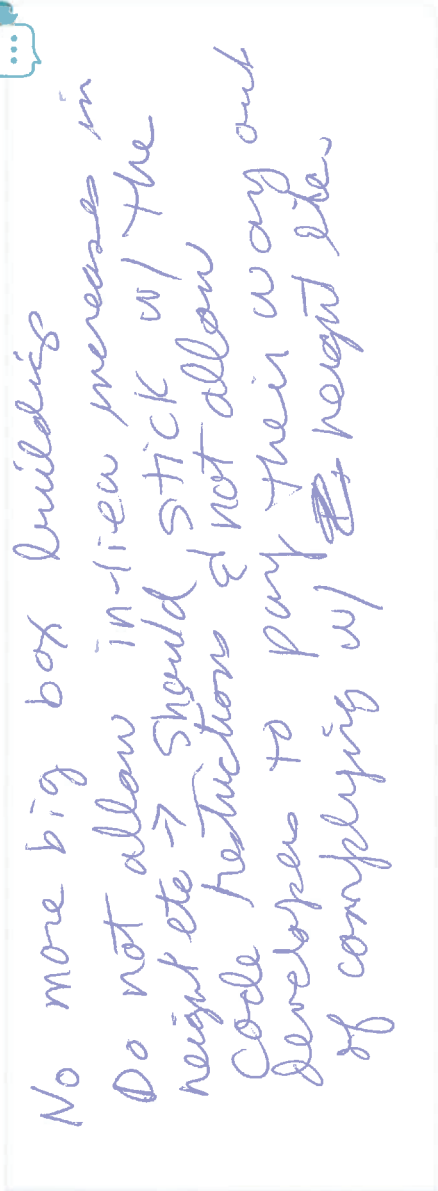 No more big box buildings
Do not allow in-lieu increases in
height etc → should stick w/ the
code restrictions & not allow
developers to pay their way out
of complying w/ height etc.